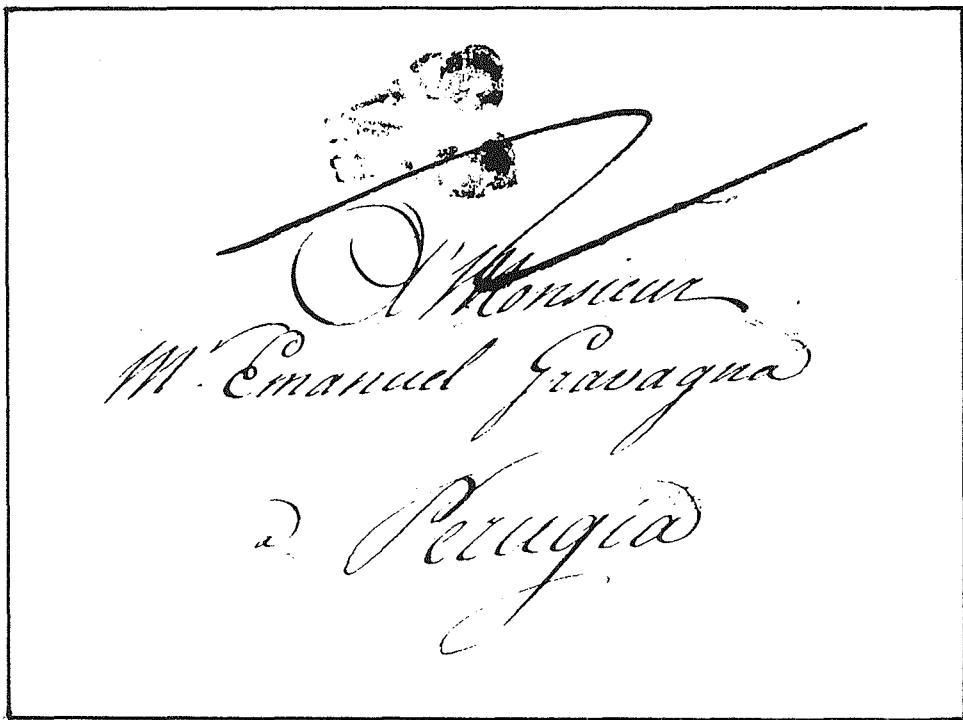 A' Monsieur
Mr. Emanuel Gravagna
à Perugia